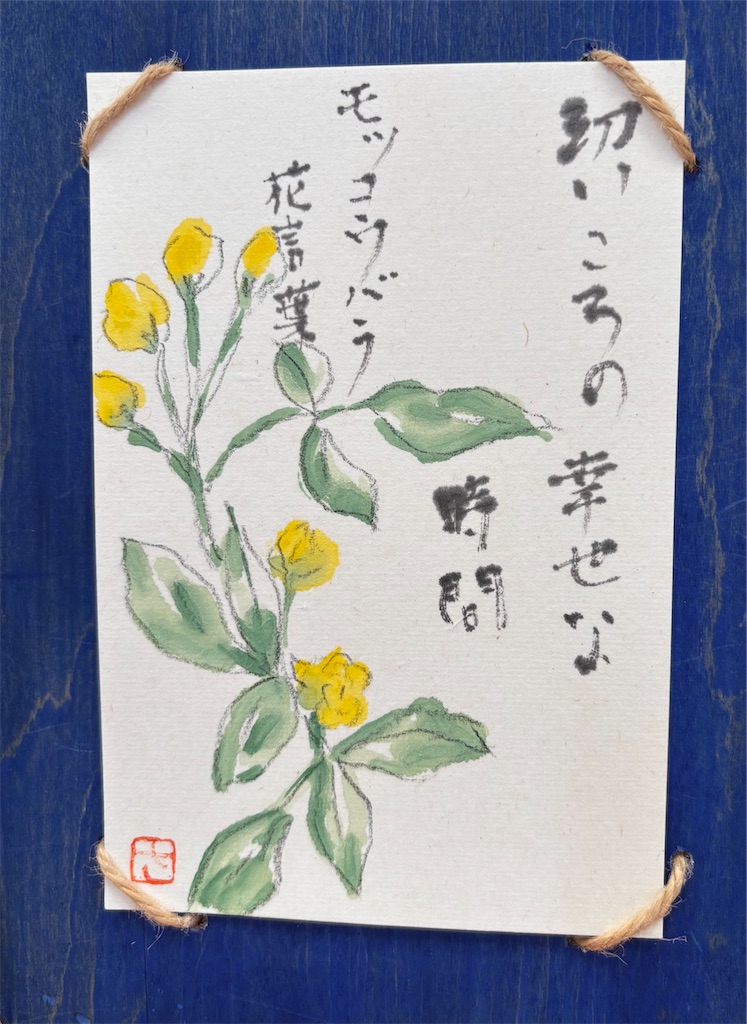 幼いころの幸せな
時間
モッコウバラ
花言葉